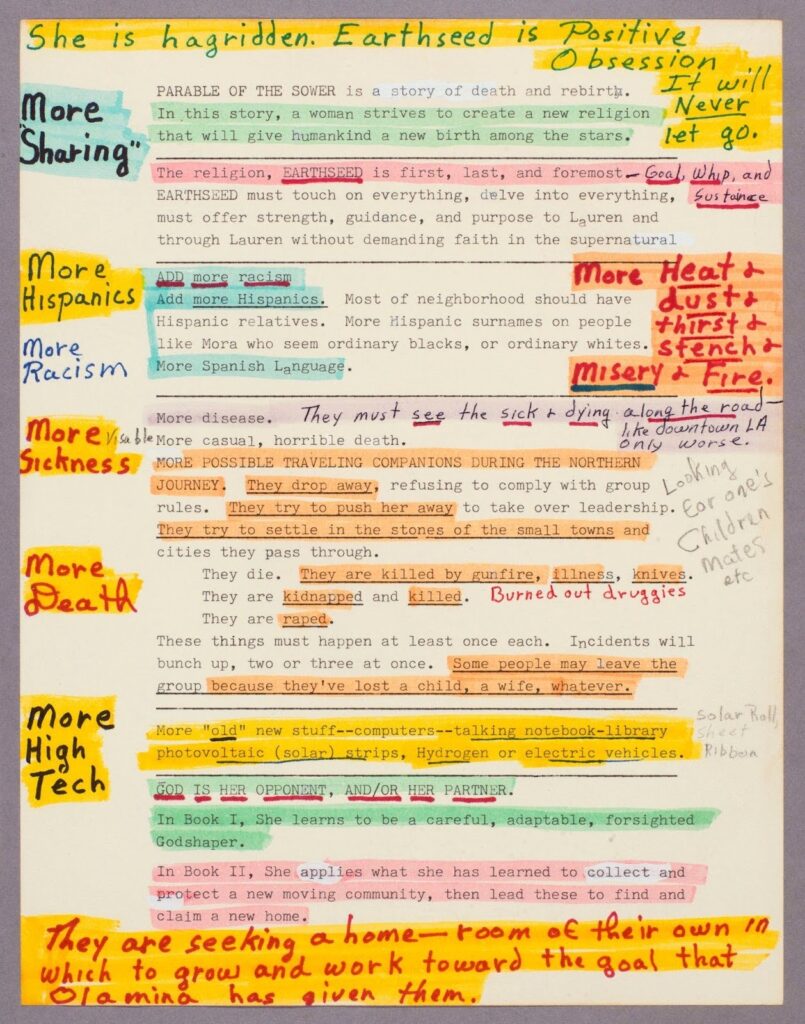 She is hagridden. Earthseed is Positive
Obsession
It will
Never
let go.
More
"Sharing"
PARABLE OF THE SOWER is a story of death and rebirth.
In this story, a woman strives to create a new religion
that will give humankind a new birth among the stars.
The religion, EARTHSEED is first, last, and foremost — Goal, Whip, and
Sustaince
EARTHSEED must touch on everything, delve into everything,
must offer strength, guidance, and purpose to Lauren and
through Lauren without demanding faith in the supernatural
More
Hispanics
More
Racism
ADD more racism
Add more Hispanics. Most of neighborhood should have
Hispanic relatives. More Hispanic surnames on people
like Mora who seem ordinary blacks, or ordinary whites.
More Spanish Language.
More Heat &
dust &
thirst &
stench &
misery & Fire.
More
Sickness
More disease. They must see the sick & dying along the road—
like downtown LA
only worse.
Visable
More casual, horrible death.
MORE POSSIBLE TRAVELING COMPANIONS DURING THE NORTHERN
JOURNEY. They drop away, refusing to comply with group
rules. They try to push her away to take over leadership.
They try to settle in the stones of the small towns and
cities they pass through.
Looking
For one's
Children
mates
etc
More
Death
They die. They are killed by gunfire, illness, knives.
They are kidnapped and killed. Burned out druggies
They are raped.
These things must happen at least once each. Incidents will
bunch up, two or three at once. Some people may leave the
group because they've lost a child, a wife, whatever.
More
High
Tech
More "old" new stuff--computers--talking notebook-library
photovoltaic (solar) strips, Hydrogen or electric vehicles.
Solar Roll,
sheet
Ribbon
GOD IS HER OPPONENT, AND/OR HER PARTNER.
In Book I, She learns to be a careful, adaptable, forsighted
Godshaper.
In Book II, She applies what she has learned to collect and
protect a new moving community, then lead these to find and
claim a new home.
They are seeking a home—room of their own in
which to grow and work toward the goal that
Olamina has given them.